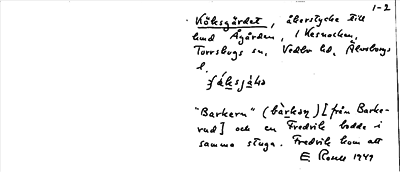 1-2
Kåksgärdet, åkerstycke till
hmd Ågården, i Kesnacken,
Torrskogs sn, Vedbo hd, Älvsborgs
l.
"Barkern" (bàrkəɳ) [från Barke-
rud] och en Fredrik bodde i
samma stuga. Fredrik kom att
E Rosell 1949